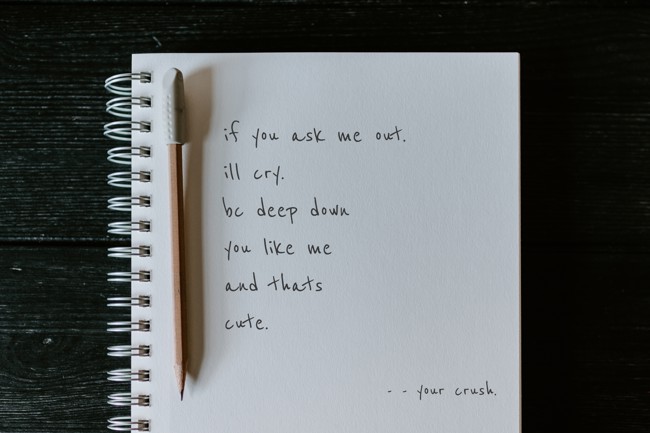 if you ask me out.
ill cry.
bc deep down
you like me
and thats
cute.
-- your crush.